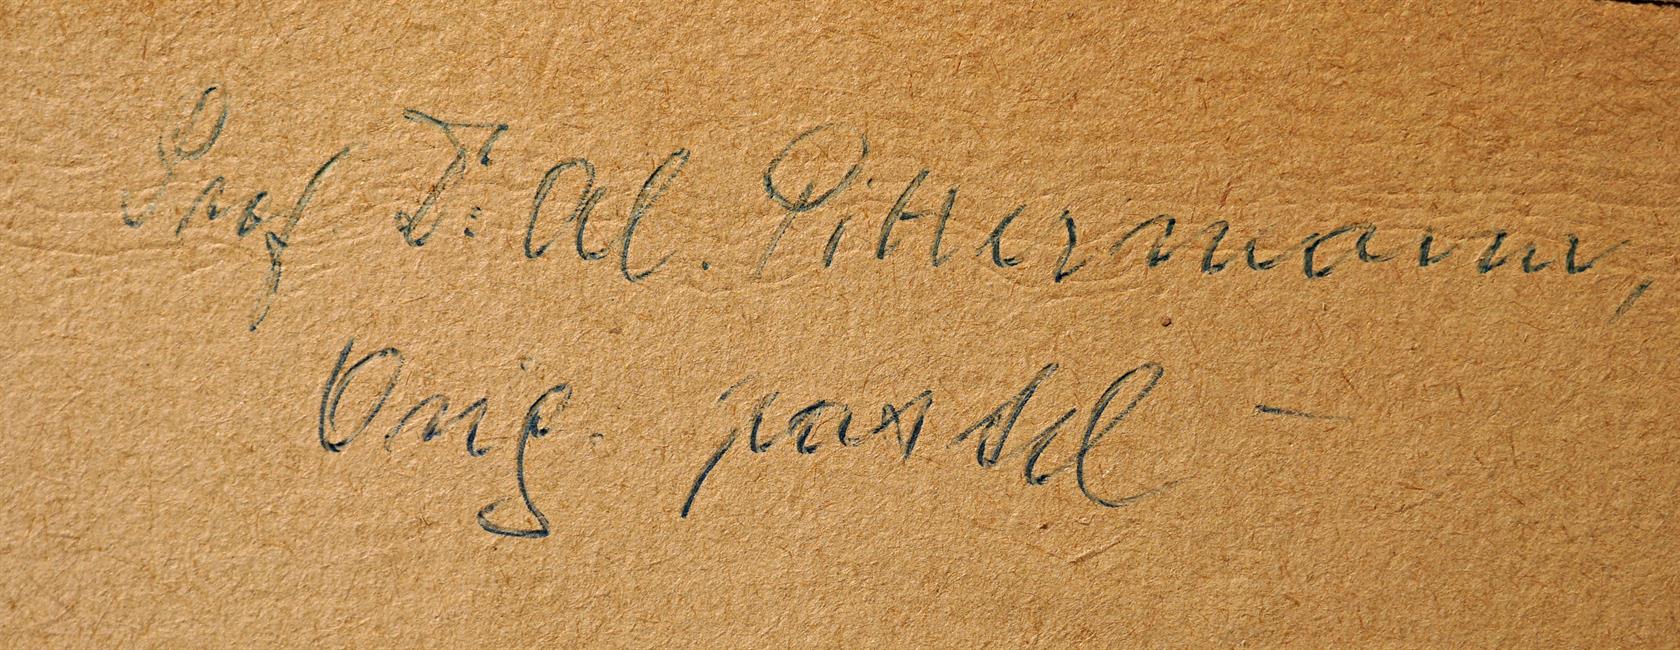 Prof Dr. Al. Pittermann,
Orig. pastel –